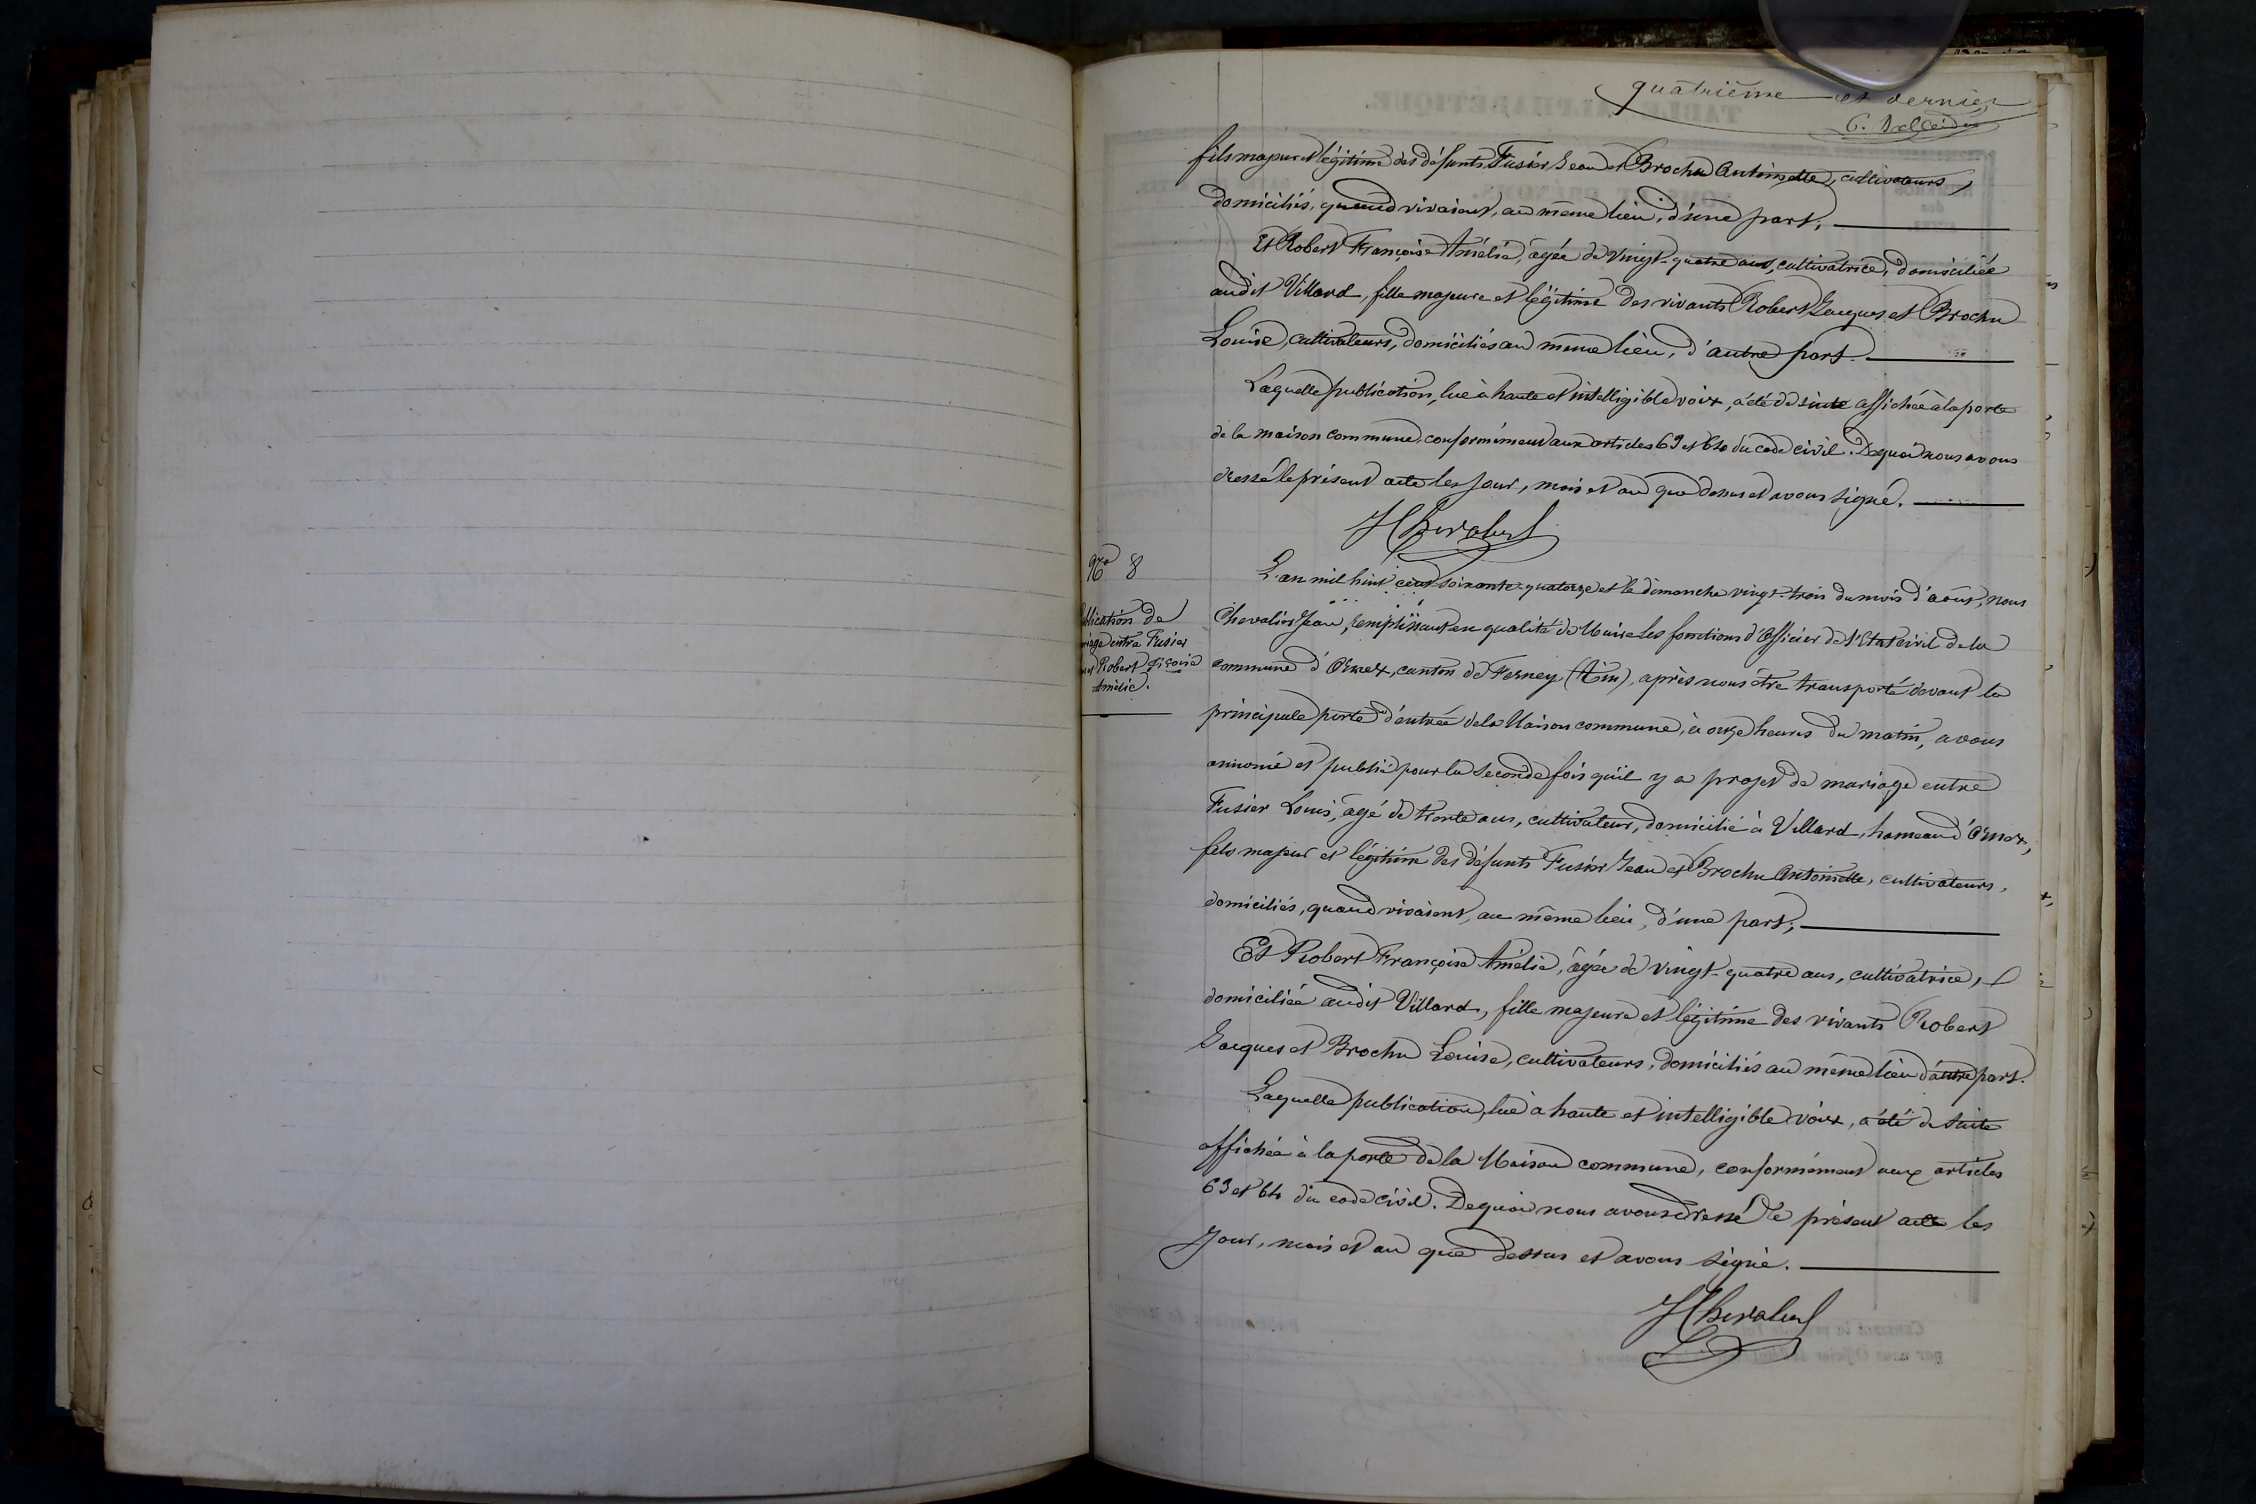 quatrième et dernier
fils majeur et légitime des défunts Fusier Jean et Brochu Antoinette, cultivateurs,
domiciliés, quand vivaient, au même lieu, d'une part,
Et Robert Françoise Amélie, âgée de vingt-quatre ans, cultivatrice, domiciliée
audit Villard, fille majeure et légitime des vivants Robert Jacques et Brochu
Louise, cultivateurs, domiciliés au même lieu, d'autre part.
Laquelle publication, lue à haute et intelligible voix, a été de suite affichée à la porte
de la maison commune, conformément aux articles 63 et 64 du code civil. De quoi nous avons
dressé le présent acte les jour, mois et an que dessus et avons signé.
JChevalier
No 8
blication de
riage entre Fusier
et Robert Fçoise
Amélie.
L'an mil huit cent soixante-quatorze et le dimanche vingt-trois du mois d'août, nous
Chevalier Jean, remplissant en qualité de Maire les fonctions d'Officier de l'Etat civil de la
commune d'Ornex, canton de Ferney (Ain), après nous être transporté devant la
principale porte d'entrée de la Maison commune, à onze heures du matin, avons
annoncé et publié pour la seconde fois qu'il y a projet de mariage entre
Fusier Louis, âgé de trente ans, cultivateur, domicilié à Villard, hameau d'Ornex,
fils majeur et légitime des défunts Fusier Jean et Brochu Antoinette, cultivateurs,
domiciliés, quand vivaient, au même lieu, d'une part;
Et Robert Françoise Amélie, âgée de vingt-quatre ans, cultivatrice,
domiciliée audit Villard, fille majeure et légitime des vivants Robert
Jacques et Brochu Louise, cultivateurs, domiciliés au même lieu d'autre part.
Laquelle publication, lue à haute et intelligible voix, a été de suite
affichée à la porte de la Maison commune, conformément aux articles
63 et 64 du code civil. De quoi nous avons dressé le présent acte les
jour, mois et an que dessus et avons signé.
JChevalier